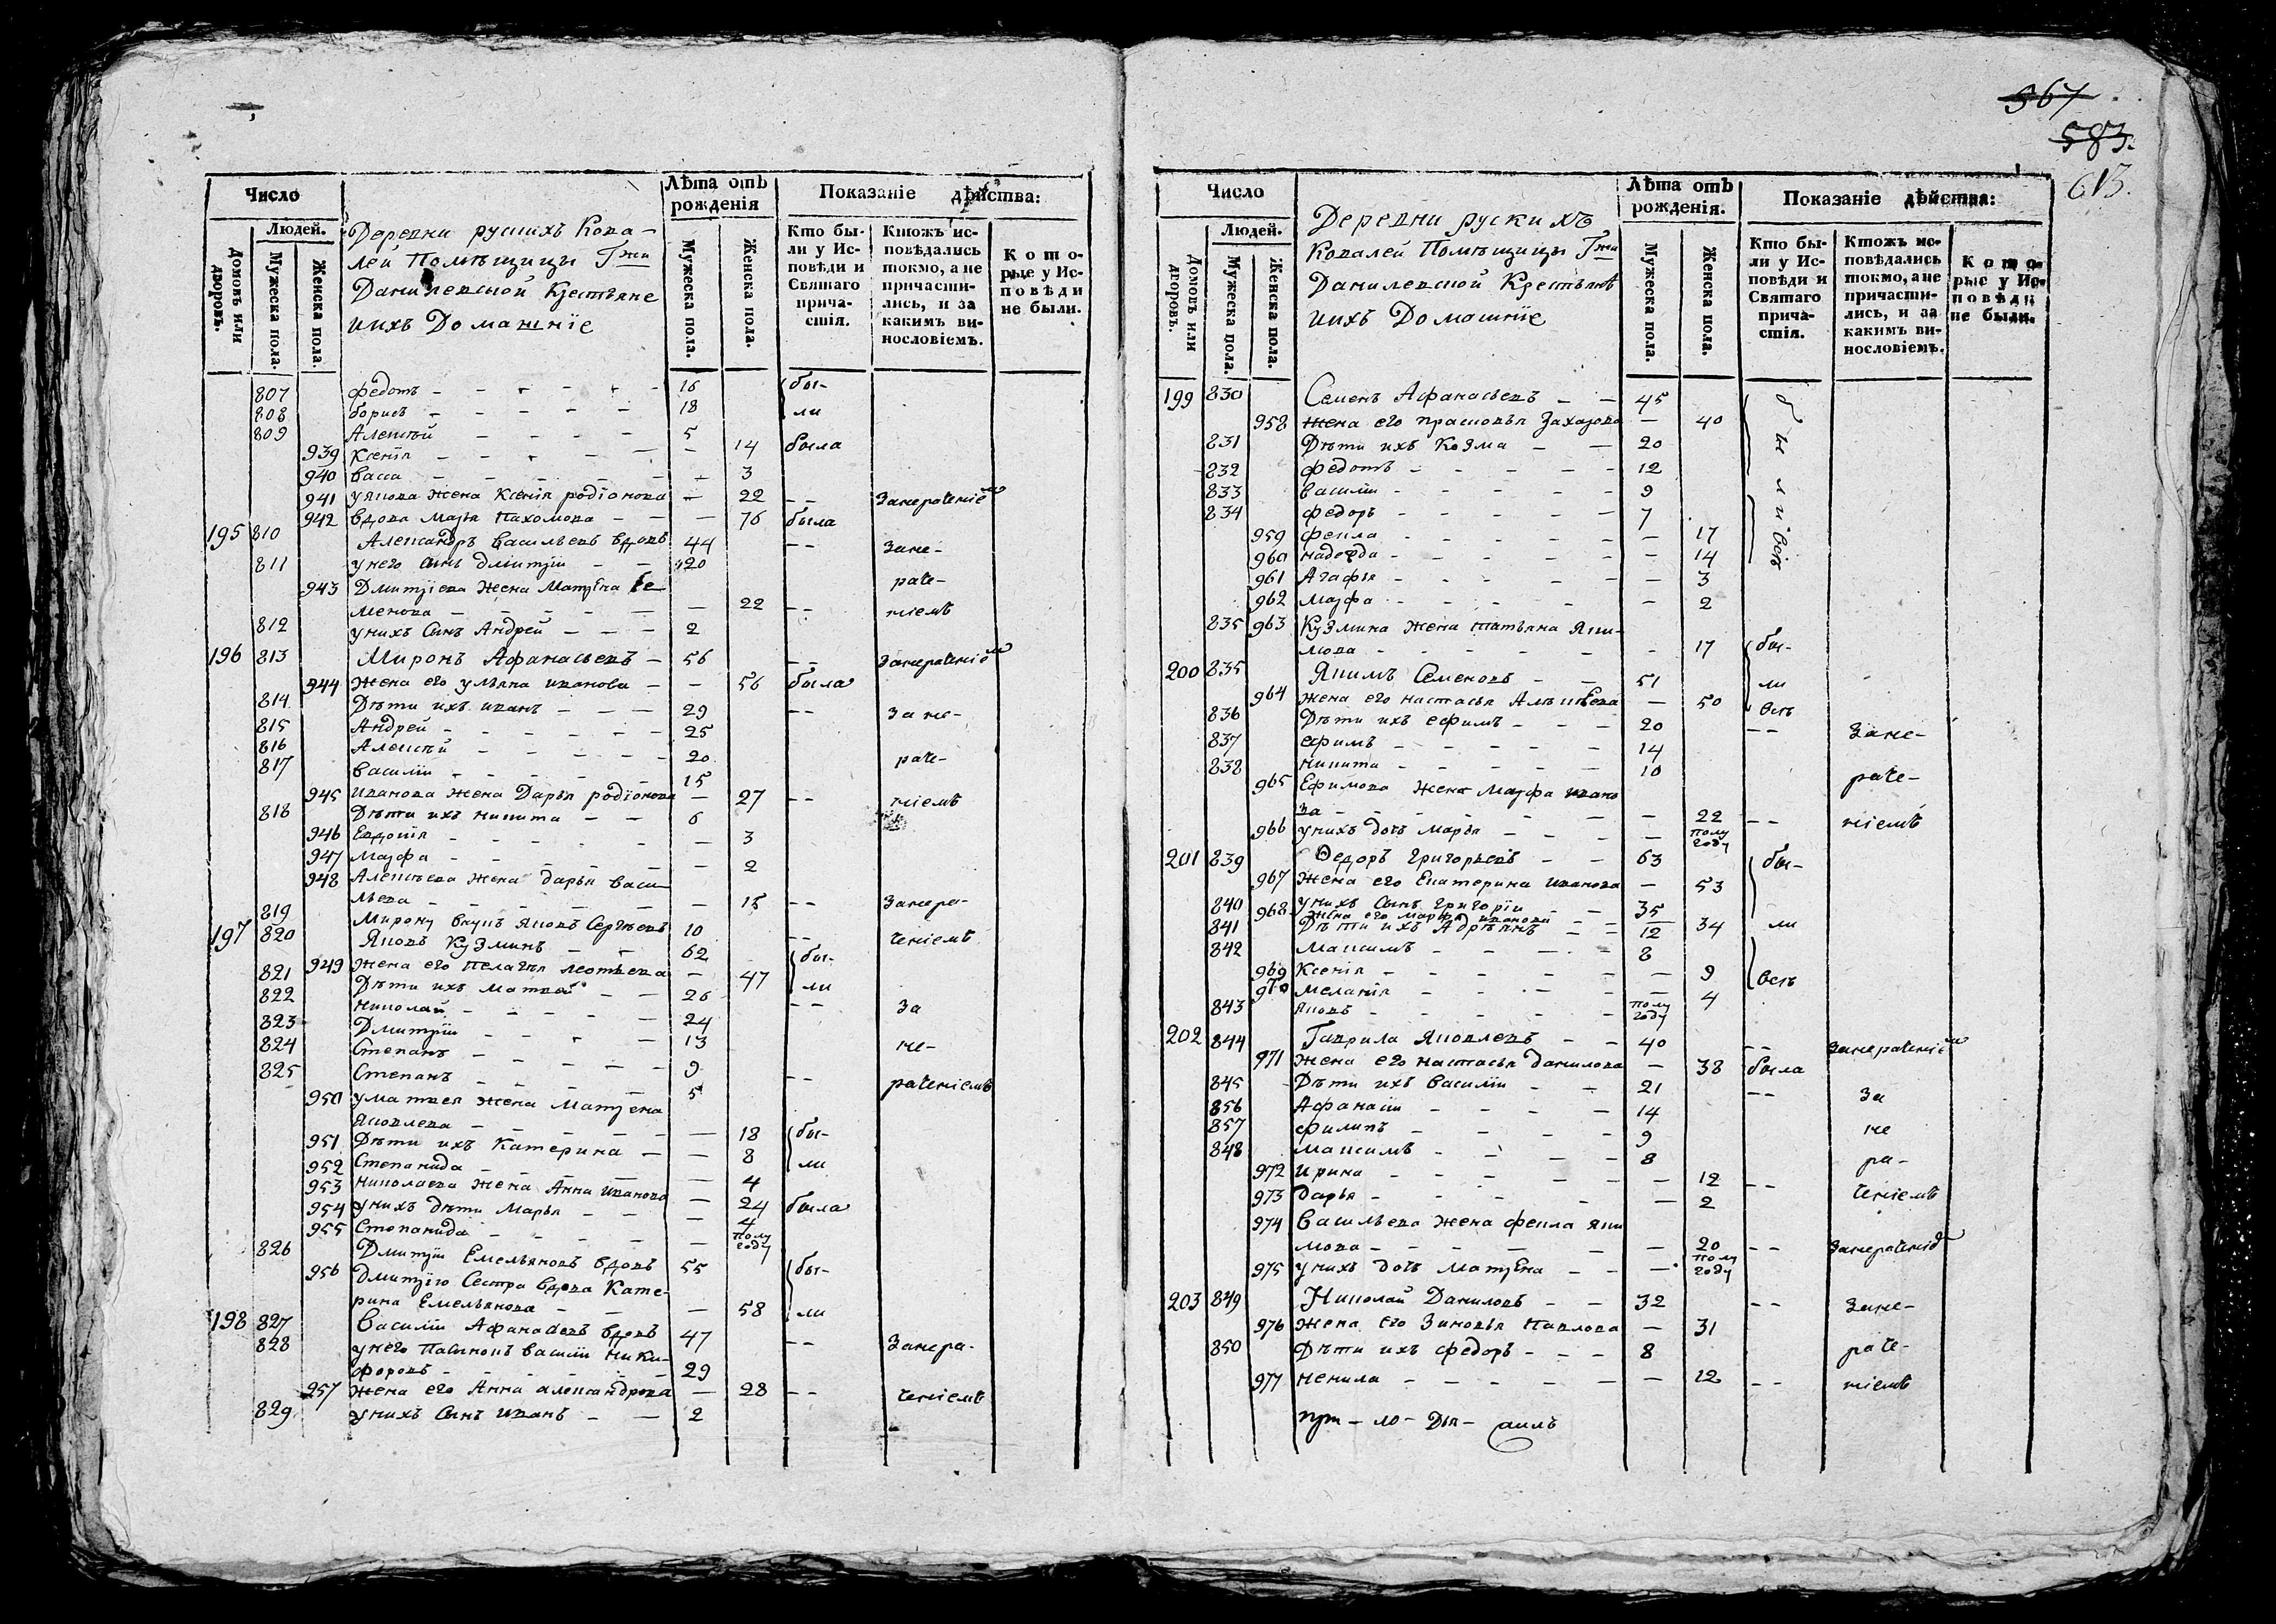 Число
Людей.
Домовъ или дворовъ.
Мужеска пола.
Женска пола.
Деревни рускихъ Кова-
лей Помѣщицы Гжи
Данилевской Крестьяне
иихъ Домашніе
Лѣта отъ рожденія
Мужеска пола.
Женска пола.
Показаніе дѣйства:
Кто бы-
ли у Ис-
повѣди и
Святаго
прича-
стія.
Ктожъ ис-
повѣдались
токмо, а не
причасти-
лись, и за
какимъ ви-
нословіемъ.
Кото-
рые у Ис-
повѣди
не были.
807 федотъ - - - - - 16 бы-
808 борисъ - - - - - 18 ли
809 Алексѣй - - - - 5
939 Ксенія - - - - - - 14 была
940 васа - - - - - - 3
941 уякова жена Ксенія родіонова — 22 - - Занераченіемъ
942 вдова марья Пахомова - - — 76 была
195 810 Александръ васильевъ вдовъ 44 - - Зане-
811 унего сынъ дмитрій - - 20
943 Дмитріева жена Матрена Се- раче-
менова - - - - - — 22 - - ніемъ
812 унихъ сынъ Андрей - - - 2
196 813 Миронъ Афанасьевъ - 56 - - Занераченіемъ
944 жена его ульяна иванова - - 56 была
814 Дѣти ихъ иванъ - - - 29 - - Зане-
815 Андрей - - - - - - 25
816 Алексѣй - - - - - 20 раче-
817 василій - - - - - 15
945 иванова жена Дарья родіонова — 27 - - ніемъ
818 Дѣти ихъ никита - - 6
946 Евдокія - - - - - - 3
947 марфа - - - - - - 2
948 Алексѣева жена дарья васи-
льева - - - - - - 15 - - Занера-
819 Мирону внукъ Яковъ Сергѣевъ 10 - - ченіемъ
197 820 Яковъ Кузминъ - - 62 бы-
949 жена его пелагѣя леонтьева — 47 ли
821 Дѣти ихъ матвей - - 26 - - За
822 николай - - - - - 24
823 Дмитрій - - - - - 13 не-
824 Степанъ - - - - - 9
825 Степанъ - - - - - 5 - - раченіемъ
950 уматвея жена матрена
Яковлева - - - - - — 18 бы-
951 Дѣти ихъ Катерина - — 8 ли
952 Степанида - - - - — 4
953 николаева жена Анна иванова — 24 была
954 унихъ дѣти марья - - - 4
955 Степанида - - - - — полу году
826 Дмитрій Емельяновъ вдовъ 55 бы-
956 дмитрію сестра вдова Кате-
рина Емельянова - - — 58 ли
198 827 василій Афанасевъ вдовъ 47 - - Занера-
828 унего пасинокъ василій ники-
форовъ - - - - - 29
957 жена его Анна александрова — 28 - - ченіемъ
829 унихъ сынъ иванъ - - 2
367
583.
613.
Число
Людей.
Домовъ или дворовъ.
Мужеска пола.
Женска пола.
Деревни рускихъ
Ковалей Помѣщицы Гжи
Данилевской Крестьянѣ
иихъ Домашніе
Лѣта отъ рожденія.
Мужеска пола.
Женска пола.
Показаніе дѣйства:
Кто бы-
ли у Ис-
повѣди и
Святаго
прича-
стія.
Ктожъ ис-
повѣдались
токмо, а не
причасти-
лись, и за
какимъ ви-
нословіемъ.
Кото-
рые у Ис-
повѣди
не были.
199 830 Семенъ Афанасьевъ - - 45 были всѣ
958 жена его прасковья Захарова — 40
831 Дѣти ихъ Козма - - 20
832 федотъ - - - - - 12
833 василій - - - - - 9
834 федоръ - - - - - 7
959 фекла - - - - - - 17
960 надежда - - - - - - 14
961 Агафья - - - - - - 3
962 марфа - - - - - - 2
835 963 Кузмина жена татьяна Яки-
мова - - - - - - 17 бы-
200 835 Якимъ Семеновъ - - 51 ли
964 жена его настасья Алексѣева — 50 всѣ
836 Дѣти ихъ ефимъ - - - 20 - - Зане-
837 ефимъ - - - - - 14
838 никита - - - - - 10 раче-
965 Ефимова жена марфа ивано
ва - - - - - - 22 - - ніемъ
966 унихъ дочъ марья - - - — полу году
201 839 Ѳедоръ григорьевъ - - 63 бы-
967 жена его Екатерина иванова — 53
840 унихъ сынъ григорій - - 35
968 жена его марфа иванова - — 34 ли
841 Дѣти ихъ Адріянъ - - 12
842 максимъ - - - - 8
969 Ксенія - - - - - - 9 всѣ
970 меланія - - - - - 4
843 яковъ - - - - - полу году
202 844 Гаврила Яковлевъ - - 40 - - Занераченіемъ
971 жена его настасья данилова — 38 была
845 Дѣти ихъ василій - - 21 - - За
856 Афанасій - - - - 14
857 филипъ - - - - 9 не
848 максимъ - - - - 8 ра-
972 ирина - - - - - - 12 - -
973 дарья - - - - — 2 ченіемъ
974 васильева жена фекла яки
мова - - - - - — 20 - - Занераченіемъ
975 унихъ дочъ матрена - - — полу году
203 849 Николай Даниловъ - - 32 - - Зане-
976 жена его Зиновья Павлова — 31
850 Дѣти ихъ федоръ - - - 8 раче-
977 ненила - - - - - - 12 - - ніемъ